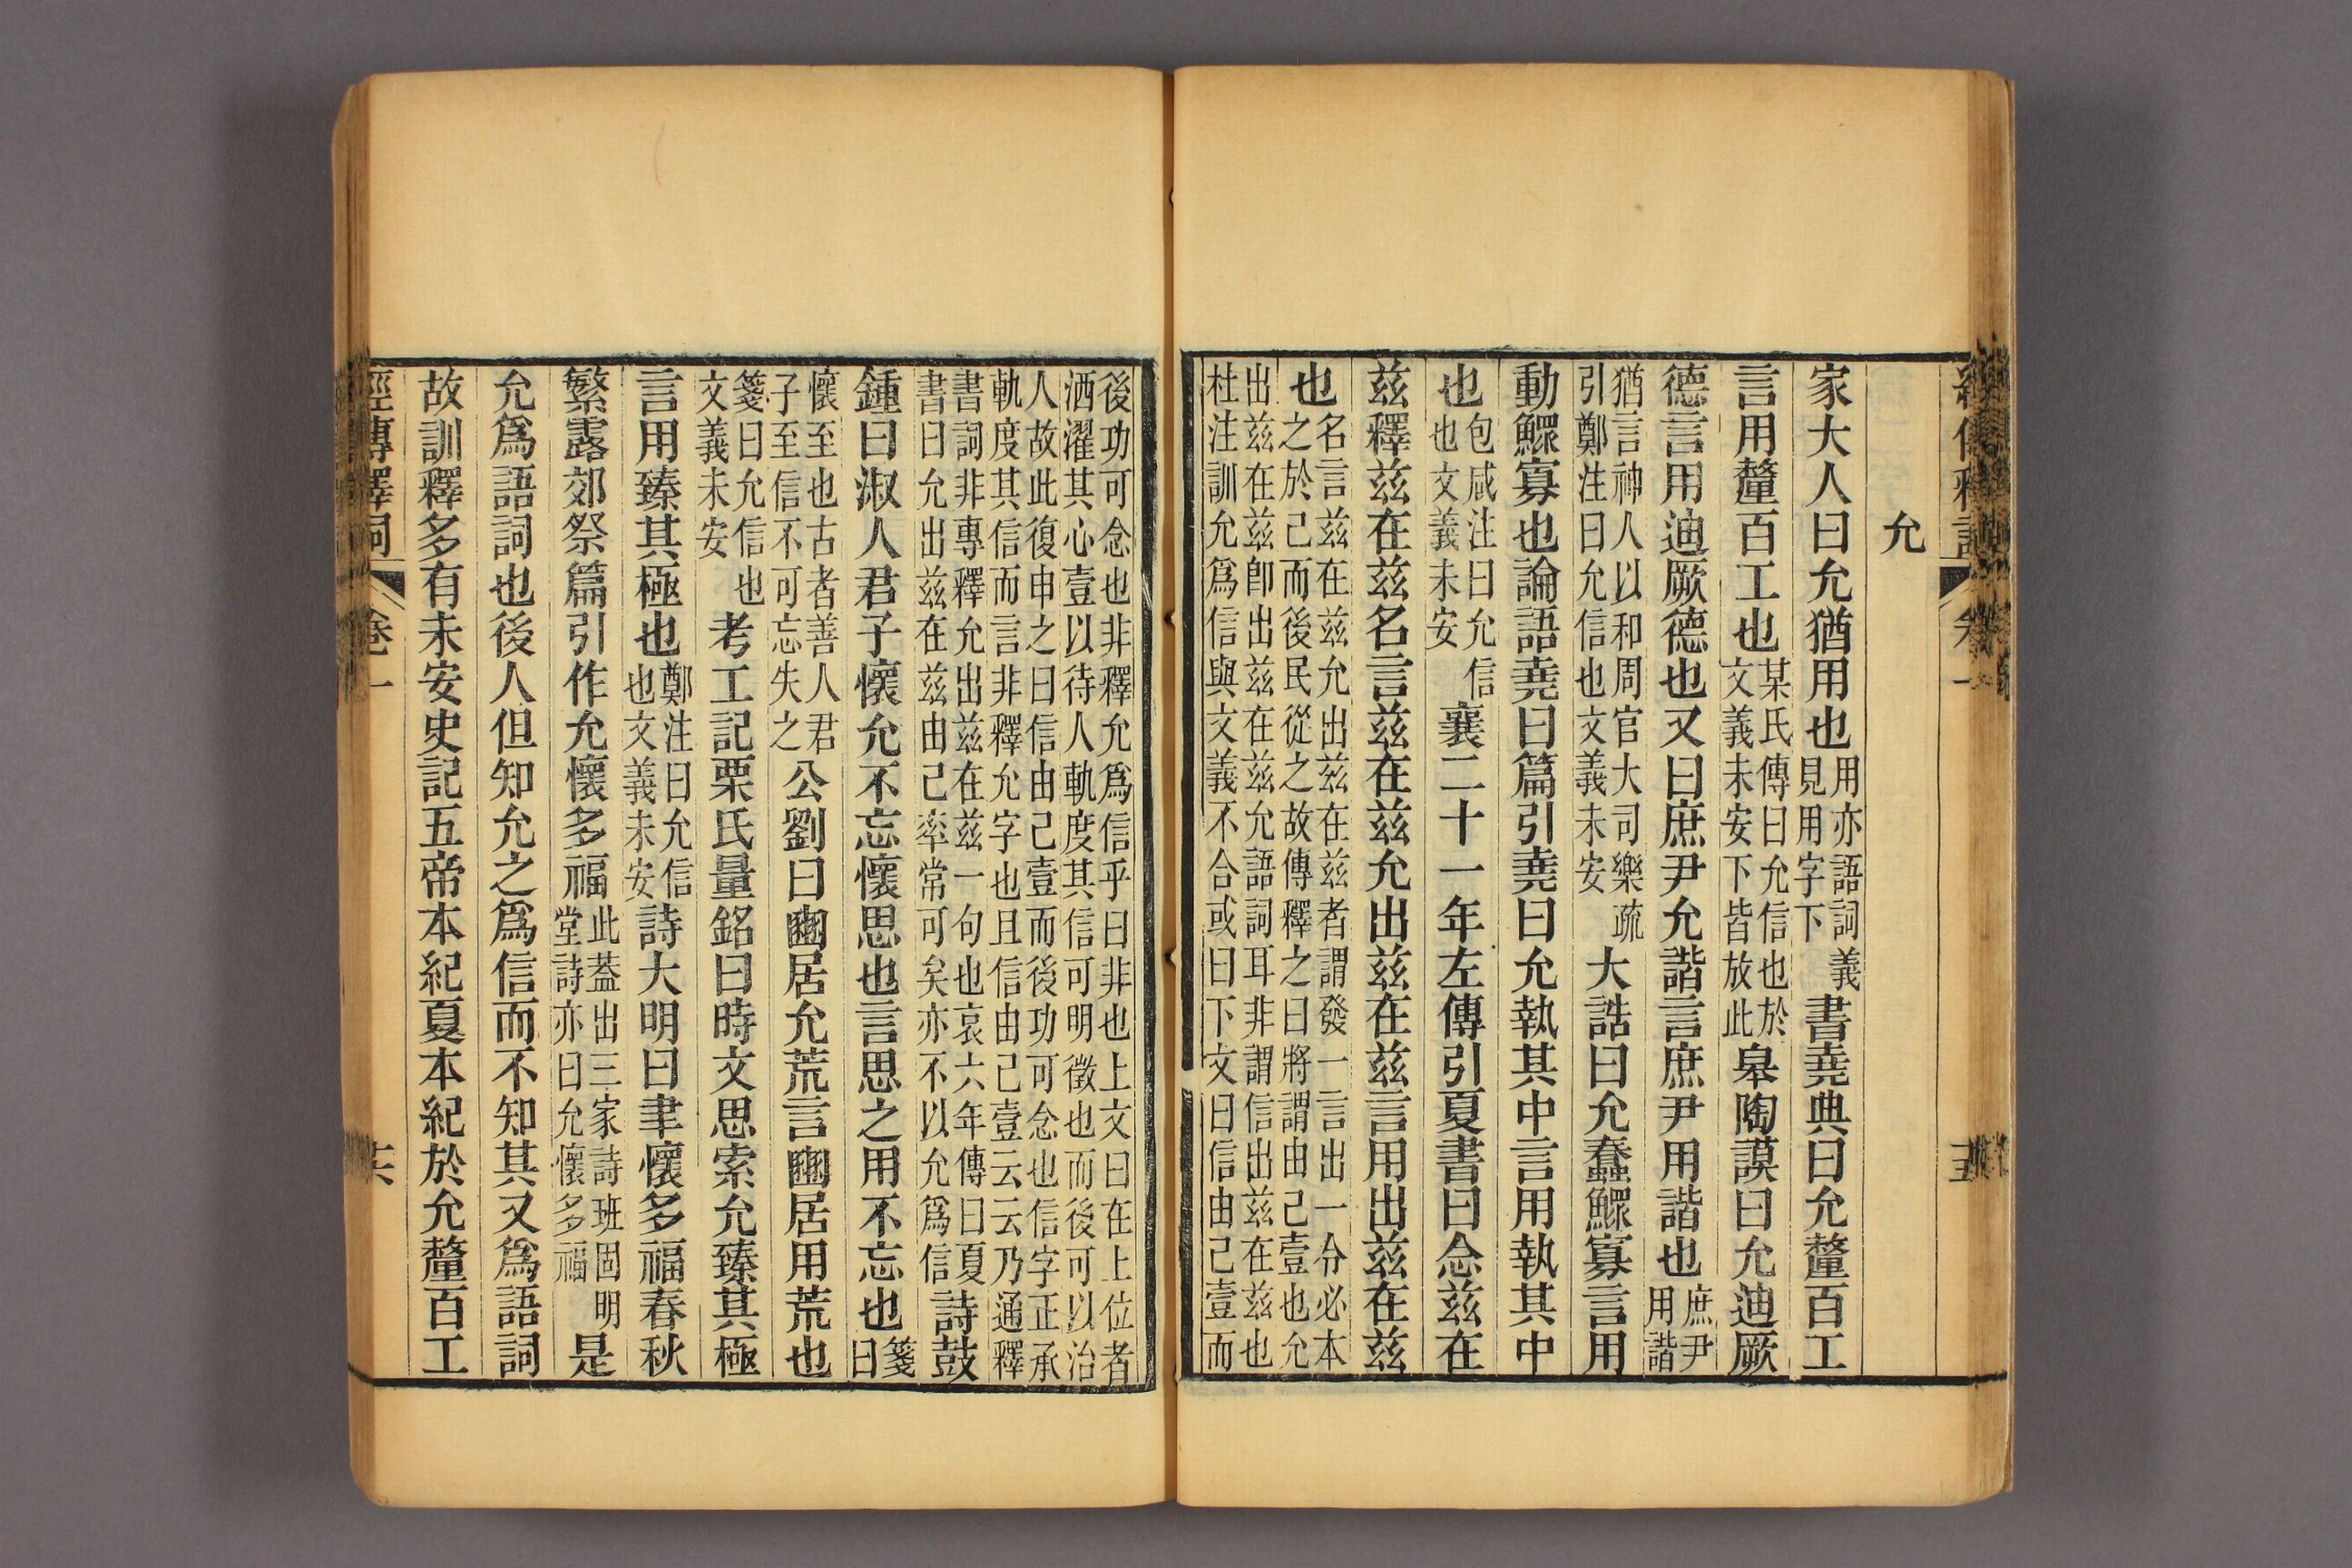 經傳釋詞 卷一 十五
允
家大人曰允猶用也用亦語詞義見用字下書堯典曰允釐百工
言用釐百工也某氏傳曰允信也於文義未安下皆放此皋陶謨曰允迪厥
德言用迪厥德也又曰庶尹允諧言庶尹用諧也庶尹用諧
猶言神人以和周官大司樂疏引鄭注曰允信也文義未安大誥曰允蠢鰥寡言用
動鰥寡也論語堯曰篇引堯曰允執其中言用執其中
也包咸注曰允信也文義未安襄二十一年左傳引夏書曰念兹在
兹釋兹在兹名言兹在兹允出兹在兹言用出兹在兹
也名言兹在兹允出兹在兹者謂發一言出一分必本之於己而後民從之故傳釋之曰將謂由己壹也允
出兹在兹卽出兹在兹允語詞耳非謂信出兹在兹也杜注訓允爲信與文義不合或曰下文曰信由己壹而
後功可念也非釋允爲信乎曰非也上文曰在上位者洒濯其心壹以待人軌度其信可明徵也而後可以治
人故此復申之曰信由己壹而後功可念也信字正承軌度其信而言非釋允字也且信由己壹云云乃通釋
書詞非專釋允出兹在兹一句也哀六年傳曰夏書曰允出兹在兹由己率常可矣亦不以允爲信詩鼓
鍾曰淑人君子懷允不忘懷思也言思之用不忘也箋曰
懷至也古者善人君子至信不可忘失之公劉曰豳居允荒言豳居用荒也
箋曰允信也文義未安考工記栗氏量銘曰時文思索允臻其極
言用臻其極也鄭注曰允信也文義未安詩大明曰聿懷多福春秋
繁露郊祭篇引作允懷多福此蓋出三家詩班固明堂詩亦曰允懷多福是
允爲語詞也後人但知允之爲信而不知其又爲語詞
故訓釋多有未安史記五帝本紀夏本紀於允釐百工
經傳釋詞 卷一 十六